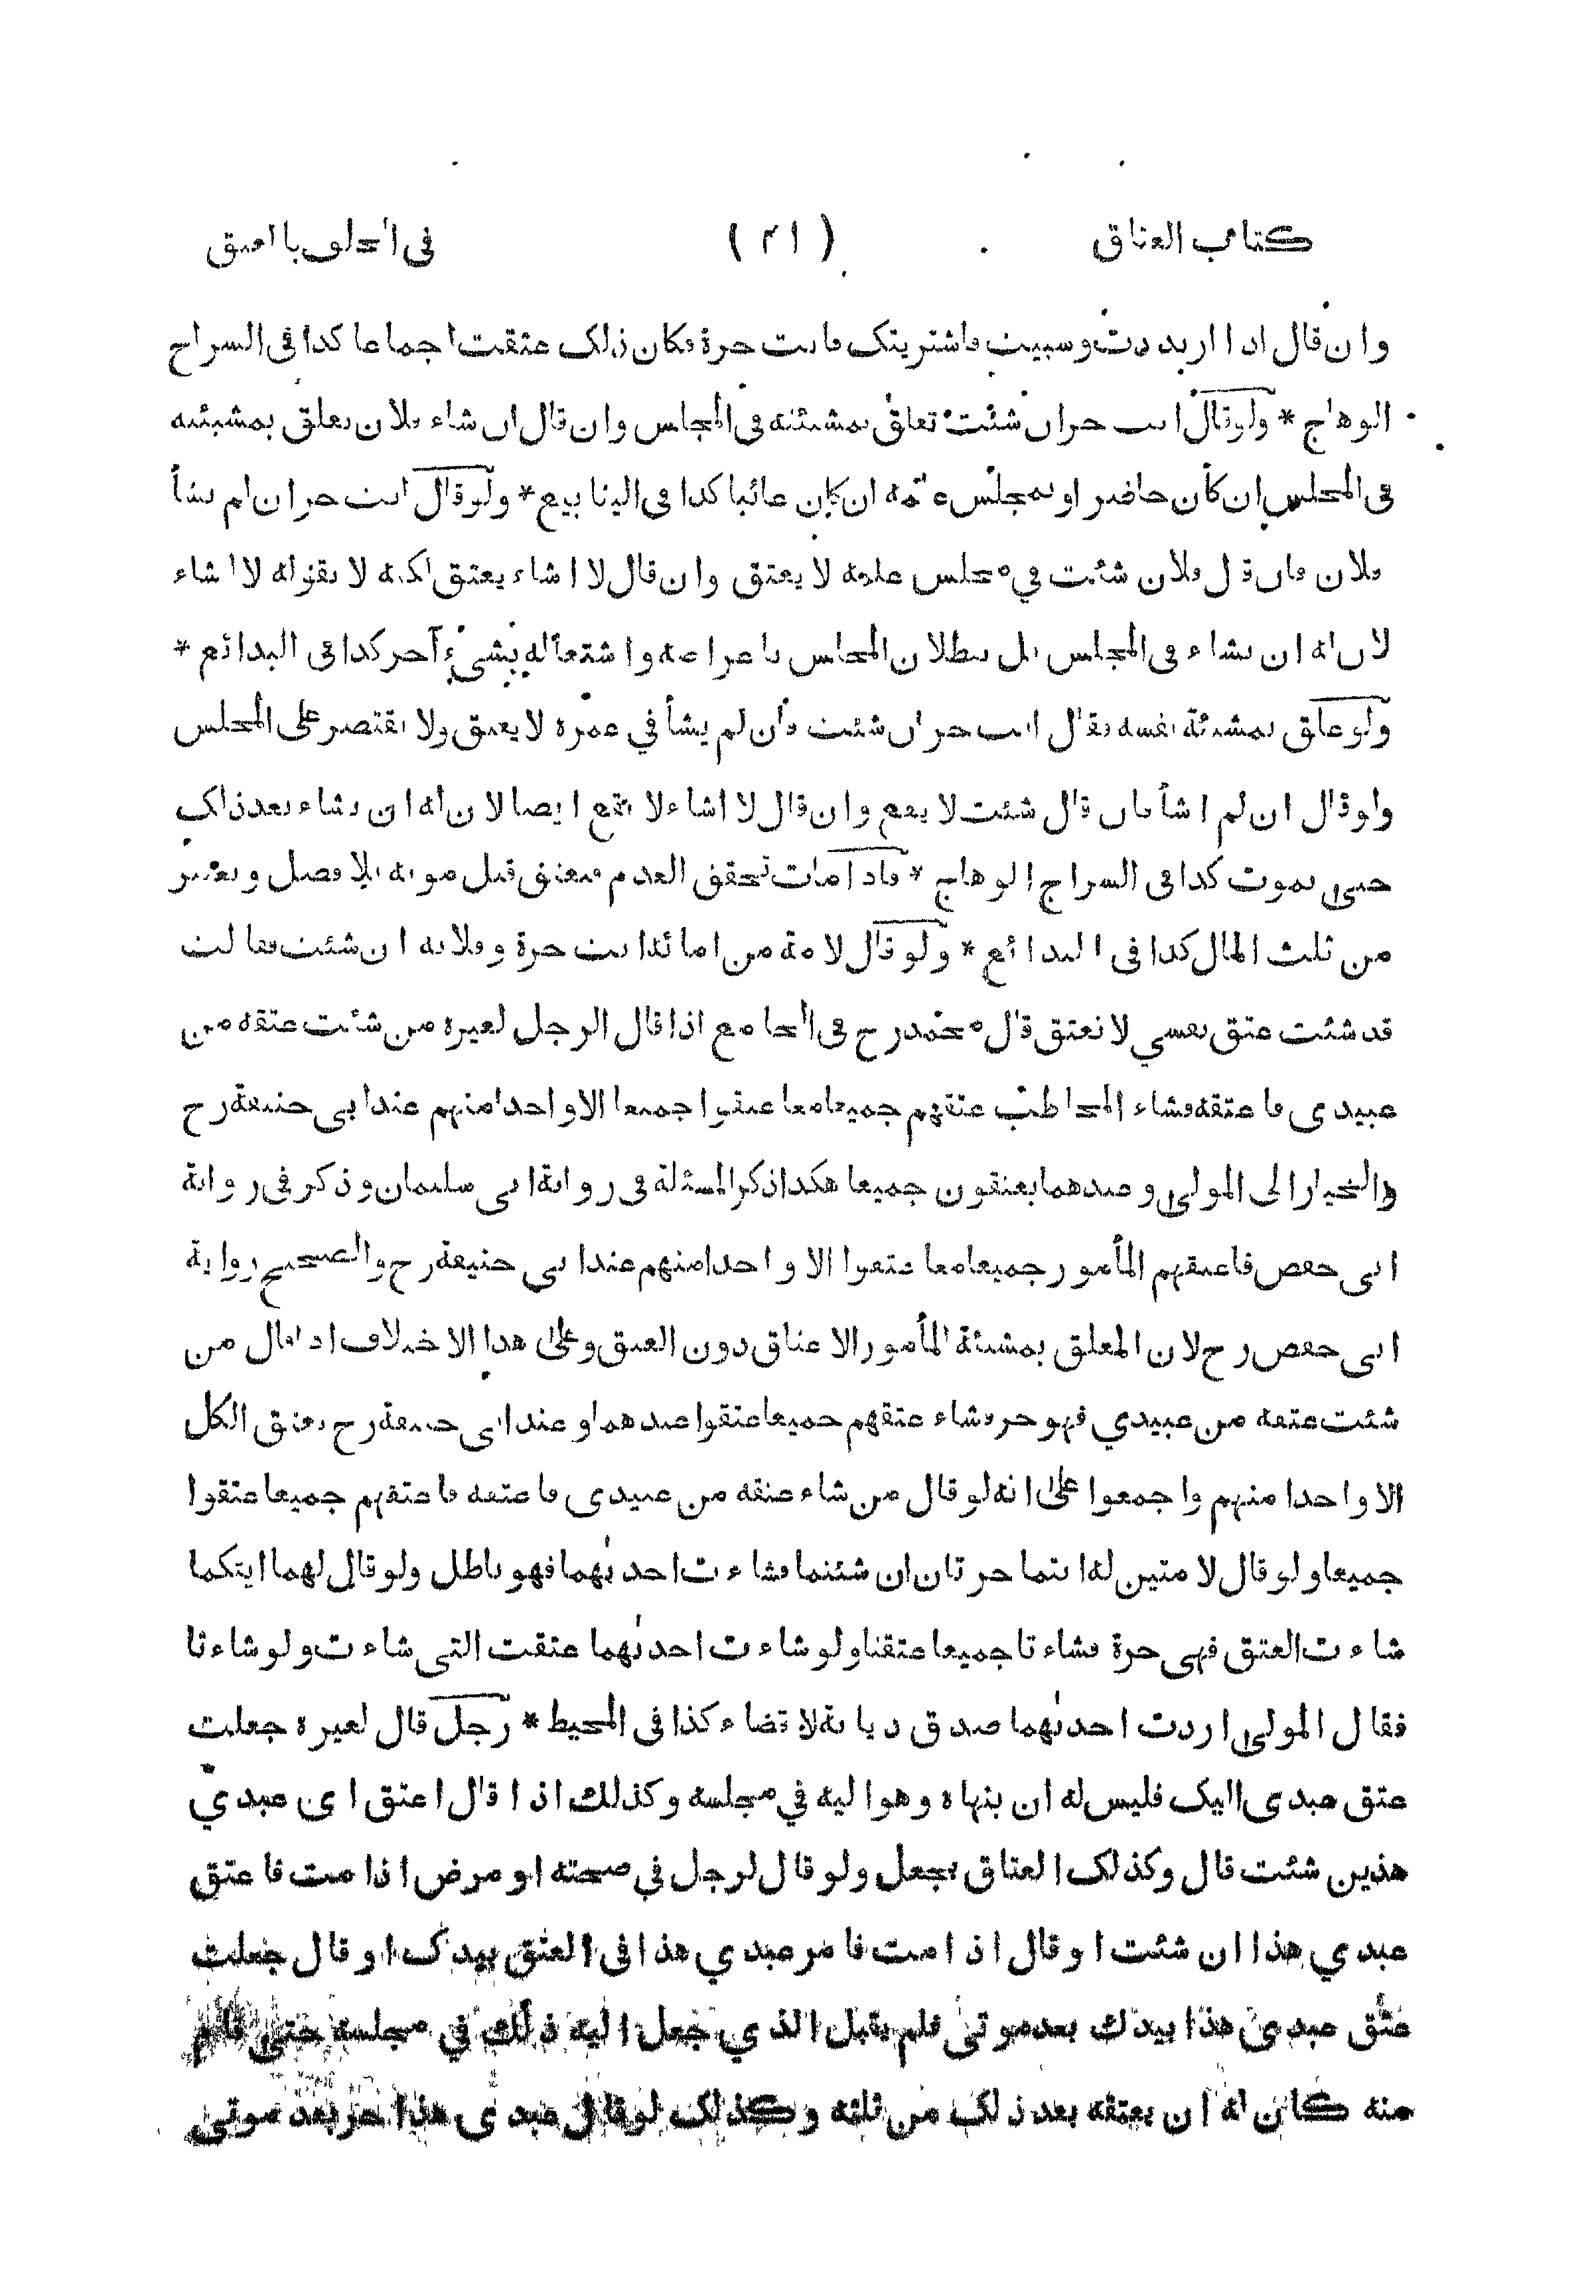 كتاب العتاق ( ٣١ ) في الحلف بالعتق
وان قال اذا ارتددت وسبيت فاشتريتك فانت حرة فكان ذلك عتقت اجماعا كذا في السراج
الوهاج * ولو قال انت حر ان شئت تعلق بمشيئته في المجلس وان قال ان شاء فلان تعلق بمشيئته
في المجلس ان كان حاضرا وبمجلس علمه ان كان غائبا كذا في الينابيع * ولو قال انت حر ان لم يشأ
فلان فان قال فلان شئت في مجلس علمه لا يعتق وان قال لا اشاء يعتق لكنه لا بقوله لا اشاء
لان له ان يشاء في المجلس بل ببطلان المجلس باعراضه واشتغاله بشيء آخر كذا في البدائع *
ولو علق بمشيئة نفسه فقال انت حر ان شئت فان لم يشأ في عمره لا يعتق ولا يقتصر على المجلس
ولو قال ان لم اشأ فان قال شئت لا يقع وان قال لا اشاء لا يقع ايضا لان له ان يشاء بعد ذلك
حتى يموت كذا في السراج الوهاج * فاذا مات تحقق العدم فيعتق قبل موته بلا فصل ويعتبر
من ثلث المال كذا في البدائع * ولو قال لامة من امائه انت حرة وفلانة ان شئت فقالت
قد شئت عتق نفسي لا تعتق قال محمد رح في الجامع اذا قال الرجل لغيره من شئت عتقه من
عبيدي فاعتقه فشاء المخاطب عتقهم جميعا معا عتقوا جميعا الا واحدا منهم عند ابي حنيفة رح
والخيار الى المولى وعندهما يعتقون جميعا هكذا ذكر المسئلة في رواية ابي سليمان وذكر في رواية
ابي حفص فاعتقهم المأمور جميعا معا عتقوا الا واحدا منهم عند ابي حنيفة رح والصحيح رواية
ابي حفص رح لان المعلق بمشيئة المأمور الاعتاق دون العتق وعلى هذا الاختلاف اذا قال من
شئت عتقه من عبيدي فهو حر فشاء عتقهم جميعا عتقوا عندهما وعند ابي حنيفة رح يعتق الكل
الا واحدا منهم واجمعوا على انه لو قال من شاء عتقه من عبيدي فاعتقه فاعتقهم جميعا عتقوا
جميعا ولو قال لامتين له انتما حرتان ان شئتما فشاءت احدىهما فهو باطل ولو قال لهما ايتكما
شاءت العتق فهي حرة فشاءتا جميعا عتقتا ولو شاءت احدىهما عتقت التي شاءت ولو شاءتا
فقال المولى اردت احدىهما صدق ديانة لا قضاء كذا في المحيط * رجل قال لغيره جعلت
عتق عبدي اليك فليس له ان ينهاه وهو اليه في مجلسه وكذلك اذا قال اعتق اي عبدي
هذين شئت قال وكذلك العتاق بجعل ولو قال لرجل في صحته او مرض اذا مت فاعتق
عبدي هذا ان شئت او قال اذا مت فامر عبدي هذا في العتق بيدك او قال جعلت
عتق عبدي هذا بيدك بعد موتي فلم يقبل الذي جعل اليه ذلك في مجلسه حتى قام
منه كان له ان يعتقه بعد ذلك من ثلثه وكذلك لو قال عبدي هذا حر بعد موتي